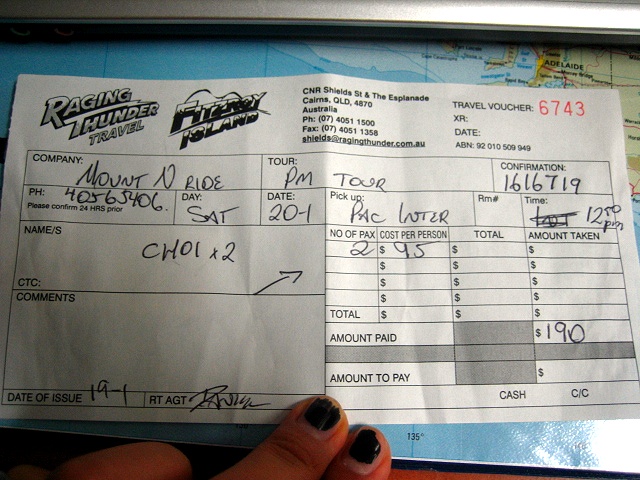 RAGING THUNDER TRAVEL
FITZROY ISLAND
CNR Shields St & The Esplanade
Cairns, QLD, 4870
Australia
Ph: (07) 4051 1500
Fax: (07) 4051 1358
shields@ragingthunder.com.au
TRAVEL VOUCHER: 6743
XR:
DATE:
ABN: 92 010 509 949
COMPANY: MOUNT N RIDE
TOUR: PM TOUR
CONFIRMATION: 1616719
PH: 40565406.
Please confirm 24 HRS prior
DAY: SAT
DATE: 20-1
Pick up: PAC INTER
Rm#
Time: 12 50 pm
NAME/S
CHOI x 2
CTC:
COMMENTS
NO OF PAX COST PER PERSON TOTAL AMOUNT TAKEN
2 $ 95 $ $
$ $ $
$ $ $
$ $ $
TOTAL $ $ $
AMOUNT PAID $ 190
AMOUNT TO PAY $
CASH C/C
DATE OF ISSUE 19-1
RT AGT
ADELAIDE
Murray Bridge
135°